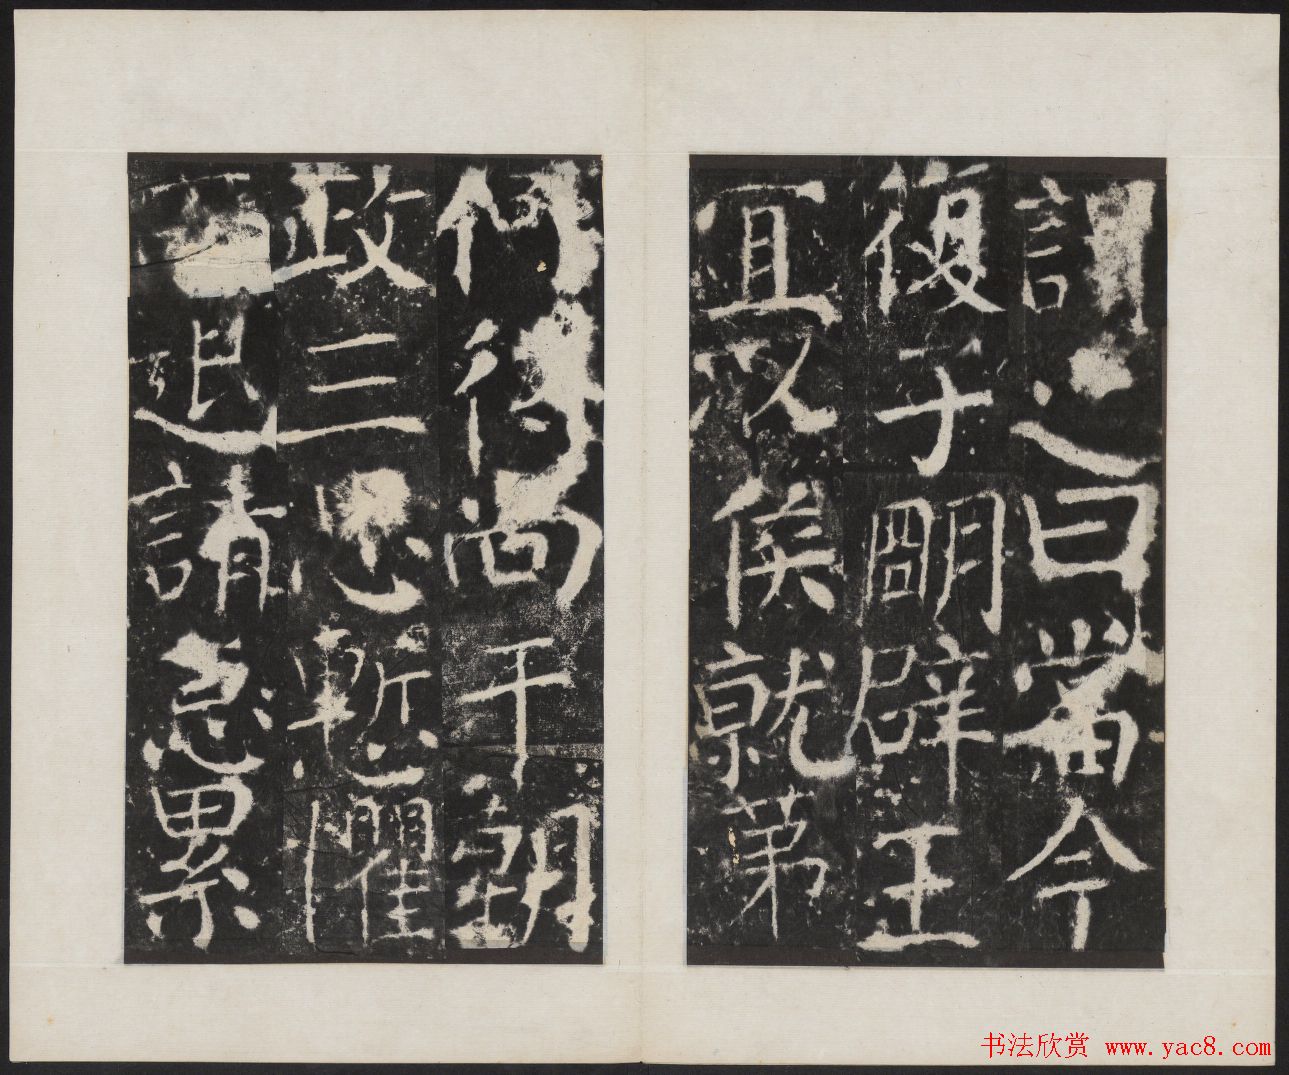 之曰當今
復子朙辟王
宜以侯就第
何得尚干朝
政三思慙懼
退請急累
书法欣赏 www.yac8.com